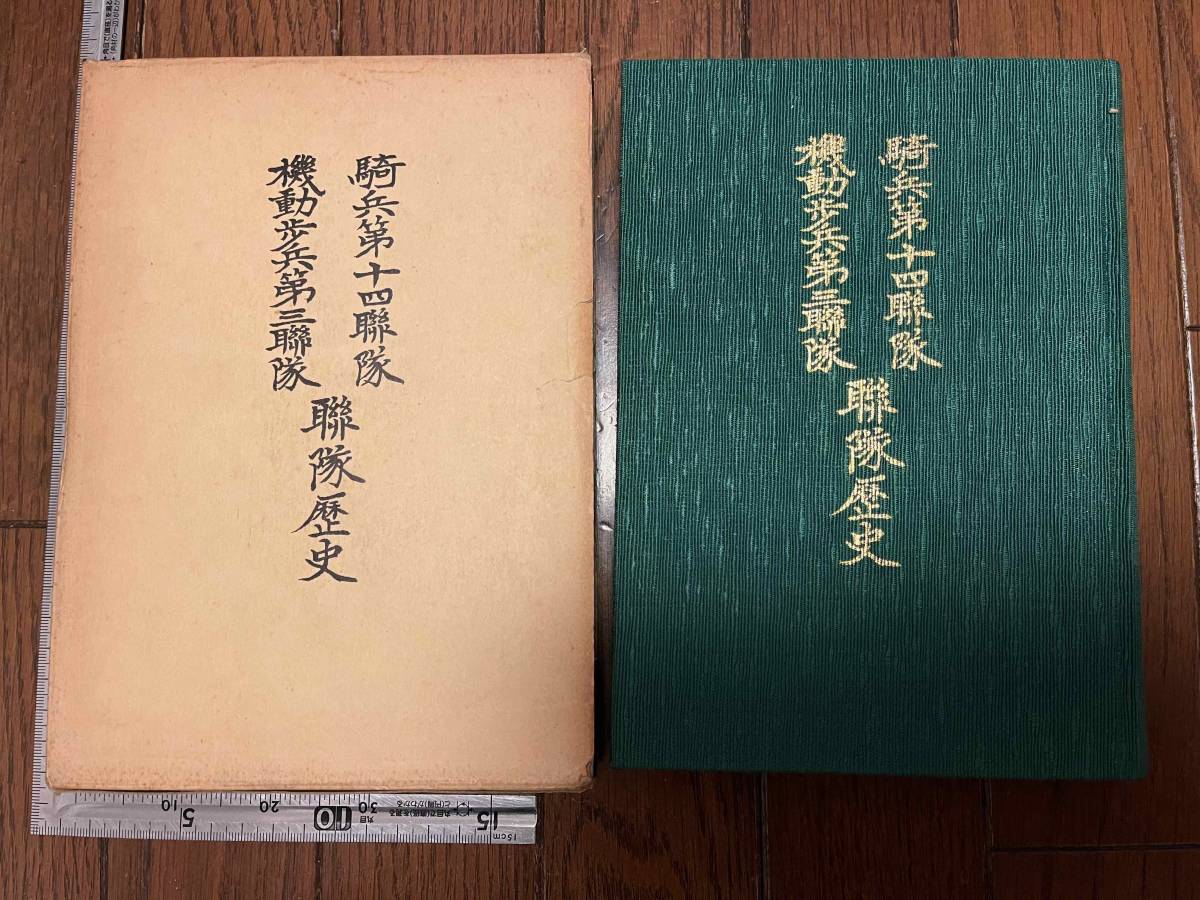 騎兵第十四聯隊
機動歩兵第三聯隊
聯隊歴史
騎兵第十四聯隊
機動歩兵第三聯隊
聯隊歴史
5
10
20
10
30
丸目
15
15cm